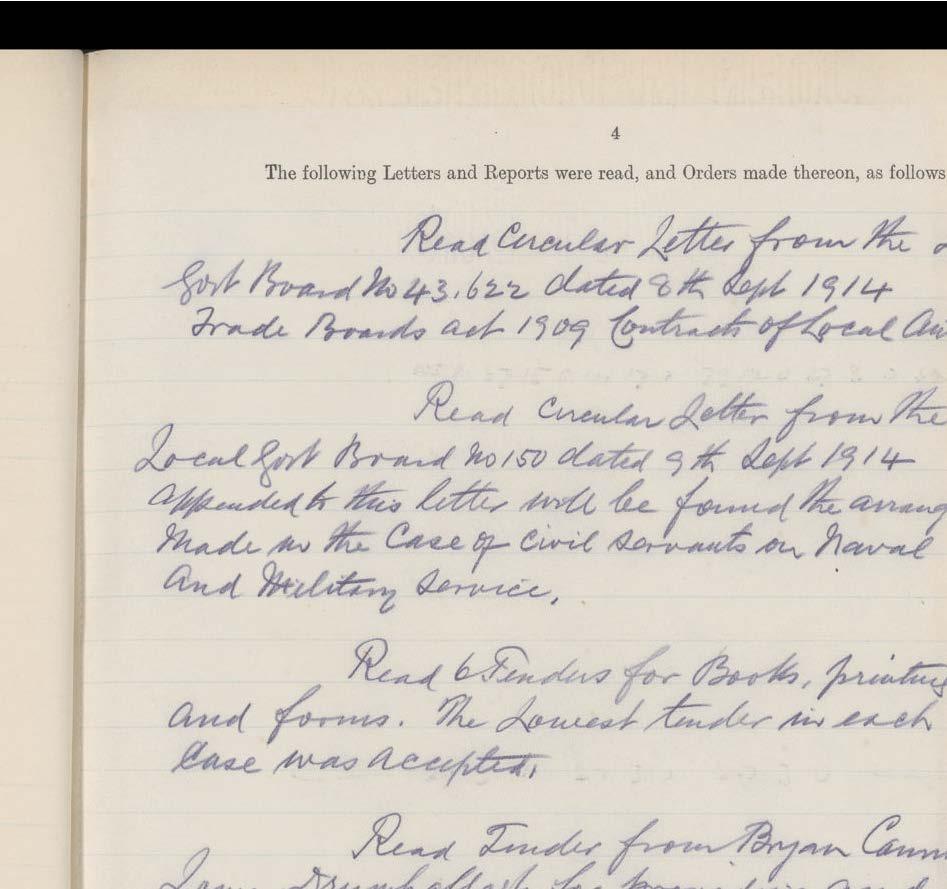 4
The following Letters and Reports were read, and Orders made thereon, as follows
Read Circular Letter from the
Govt Board No 43.622 dated 8th Sept 1914
Trade Boards act 1909 Contracts of Local Au
Read Circular Letter from the
Local Govt Board No 150 dated 9th Sept 1914
appended to this letter will be found the arrang
Made in the Case of Civil Servants on Naval
And Military Service.
Read 6 Tenders for Books, printing
And forms. The Lowest tender in each
Case was accepted.
Read Tender from Bryan